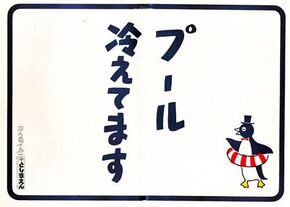 プール
冷えてます
としまえん